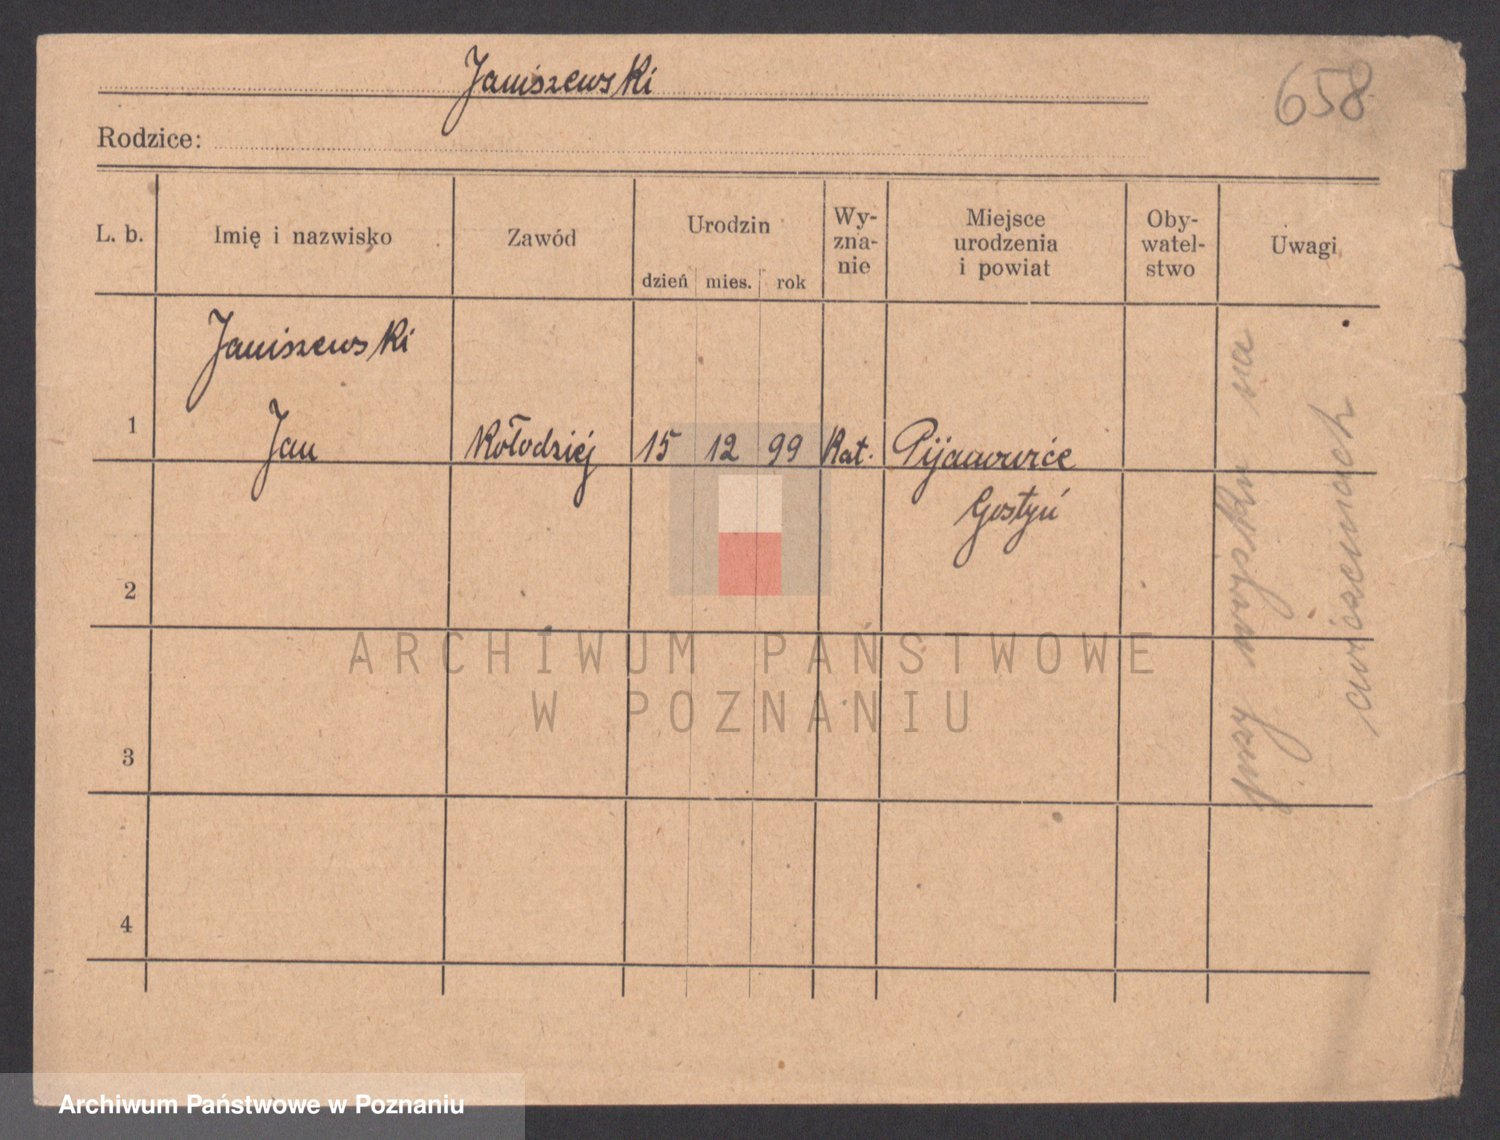 Janiszewski
658
Rodzice:
L. b.
Imię i nazwisko
Zawód
Urodzin
dzień mies. rok
Wy-
zna-
nie
Miejsce
urodzenia
i powiat
Oby-
watel-
stwo
Uwagi
Janiszewski
1 Jan Kołodziej 15 12 99 Kat. Pijanowice
Gostyń
przy wojsku na
ćwiczeniach
2
3
4
ARCHIWUM PAŃSTWOWE
W POZNANIU
Archiwum Państwowe w Poznaniu